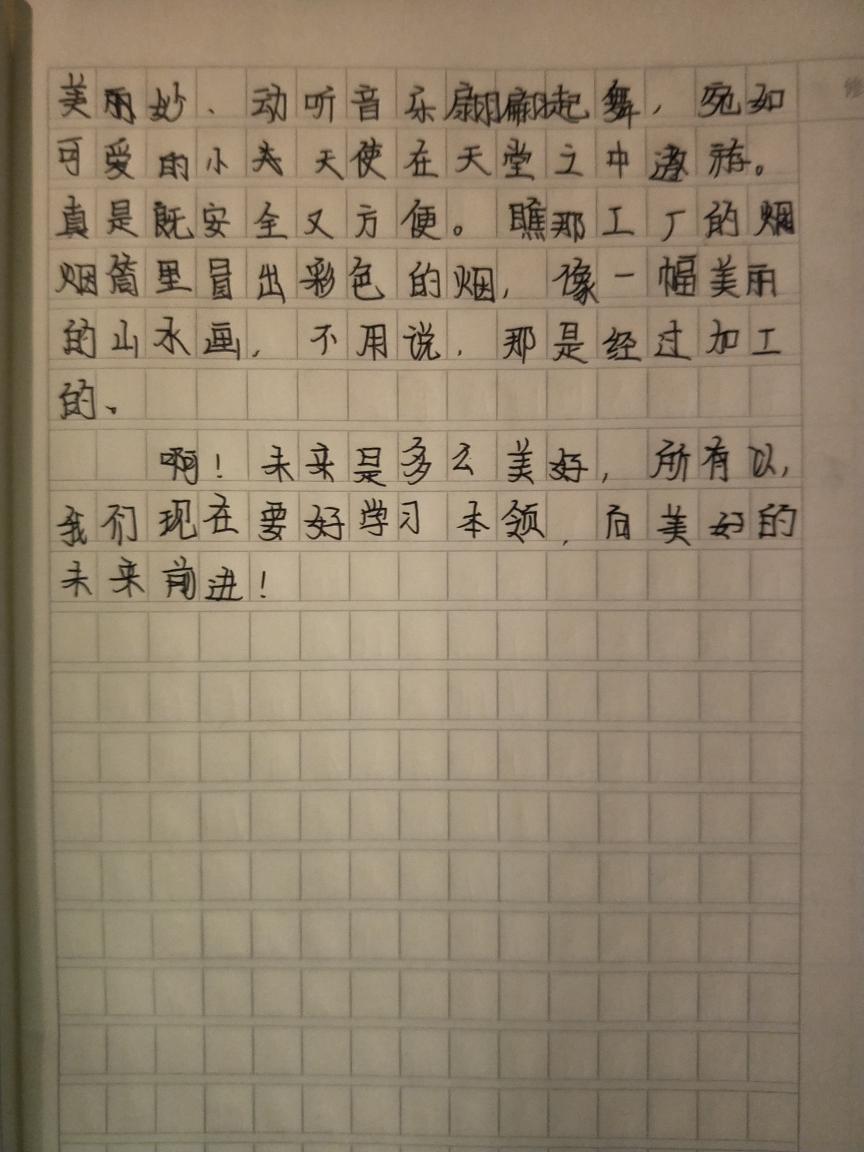 美丽妙、动听音乐翩翩起舞，宛如
可爱的小天天使在天堂之中遨游。
真是既安全又方便。瞧那工厂的烟
烟筒里冒出彩色的烟，像一幅美丽
的山水画，不用说，那是经过加工
的、
啊！未来是多么美好，所有以，
我们现在要好学习本领，向美好的
未来前进！